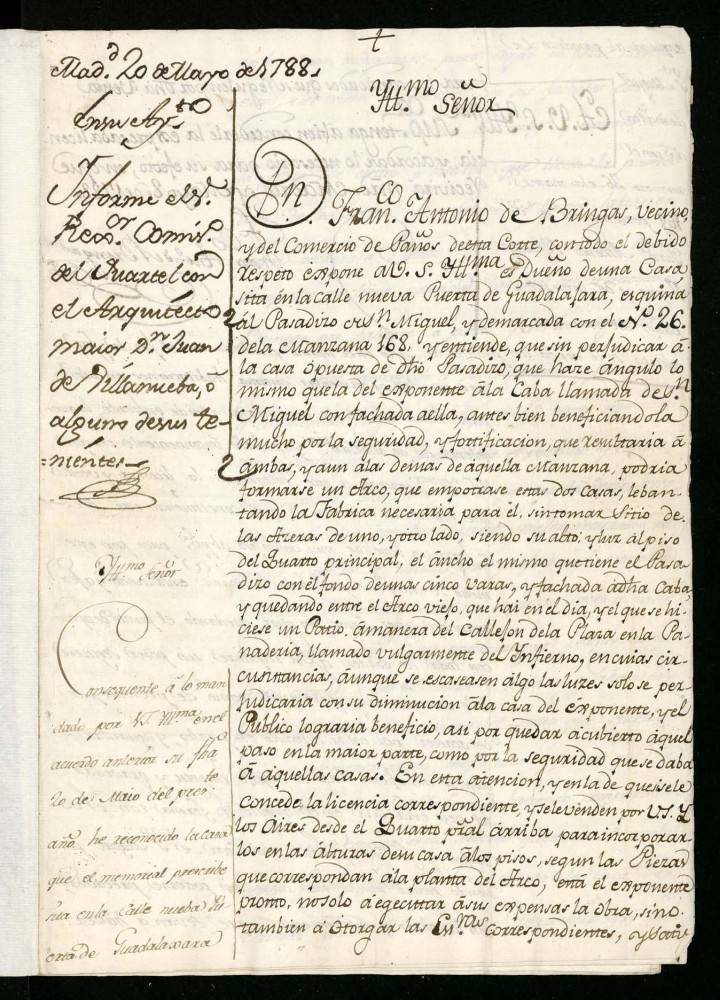 +
Mad.d 20 de Mayo de 1788.
Yll.mo Señor
En su Ay.to
Informe el S.r
Rexor. Comis.o
del Quartel con
el Arquitecto
maior D.n Juan
de Villanueba, ó
alguno de sus te-
=nientes.
D.n Fran.co Antonio de Bringas, vecino,
y del Comercio de Paños de esta Corte, con todo el debido
respeto expone a V. S. Yll.ma es Dueño de una Casa
sita en la calle nueva Puerta de Guadalajara, esquina
ál Pasadizo de S.n Miguel, y demarcada con el N.o 26.
de la Manzana 168. y entiende, que sin perjudicar á
la casa opuesta de dho Pasadizo, que haze ángulo lo
mismo que la del exponente á la Caba llamada de S.n
Miguel con fachada a ella, antes bien beneficiandola
mucho por la seguridad, y fortificacion, que resultaria á
ambas, y aun á las demas de aquella Manzana, podria
formarse un Arco, que empotrase estas dos Casas, leban-
tando la Fabrica necesaria para él, sin tomar Sitio de
las Azeras de uno, y otro lado, siendo su alto, y luz al piso
del Quarto principal, el áncho el mismo que tiene el Pasa-
dizo con el fondo de unas cinco varas, y fachada a dha Caba,
y quedando entre el Arco viejo, que hai en el dia, y el que se hi-
ciese un Patio á manera del Callejon de la Plaza en la Pa-
naderia, llamado vulgarmente del Infierno, en cuias cir-
cunstancias, áunque se escaseasen álgo las luzes solo se per-
judicaria con su diminucion á la casa del exponente, y el
Público lograria beneficio, asi por quedar á cubierto áquel
paso en la maior parte, como por la seguridad que se daba
á áquellas casas. En esta atencion, y en la de que si se le
concede la licencia correspondiente, y se le venden por V.S.Y.
los Aires desde el Quarto pral arriba para incorporar-
los en las álturas de su casa á los pisos, segun las Piezas
que correspondan á la planta del Arco, está el exponente
pronto, no solo á egecittar á sus expensas la obra, sino
tambien á Otorgar las Es.ras correspondientes, y satis
Yll.mo Señor
Consequente á lo man
dado por V.S. Yll.ma en el
acuerdo anterior su fha
20 de Maio del pres.te
año, he reconocido la casa
que el memorial prescribe
sita en la Calle nueba Pu
erta de Guadalaxara